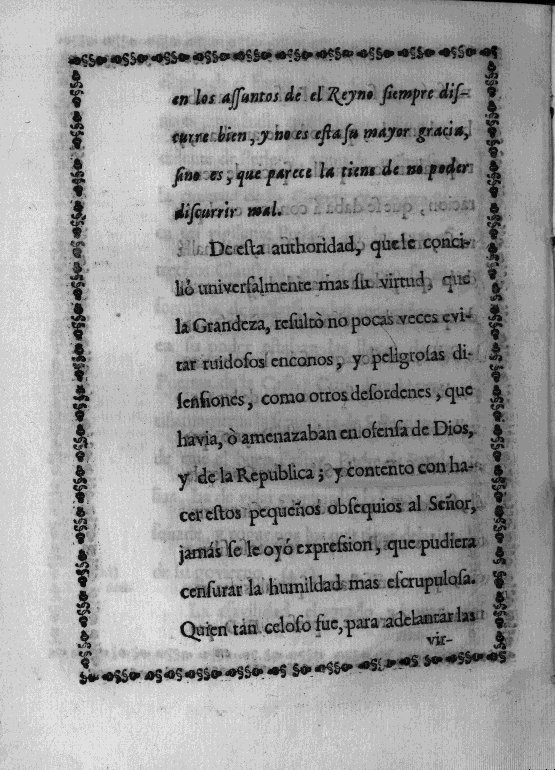 en los aſſuntos de el Reyno ſiempre diſ-
curre bien, y no es eſta ſu mayor gracia,
ſino es, que parece la tiene de no poder
diſcurrir mal.
De eſta authoridad, que le conci-
liò univerſalmente mas ſu virtud, que
la Grandeza, reſultò no pocas veces evi-
tar ruidoſos enconos, y peligroſas di-
ſenſiones, como otros deſordenes, que
havia, ò amenazaban en ofenſa de Dios,
y de la Republica; y contento con ha-
cer eſtos pequeños obſequios al Señor,
jamás ſe le oyó expreſsion, que pudiera
cenſurar la humildad mas eſcrupuloſa.
Quien tan celoſo fue, para adelantar las
vir-